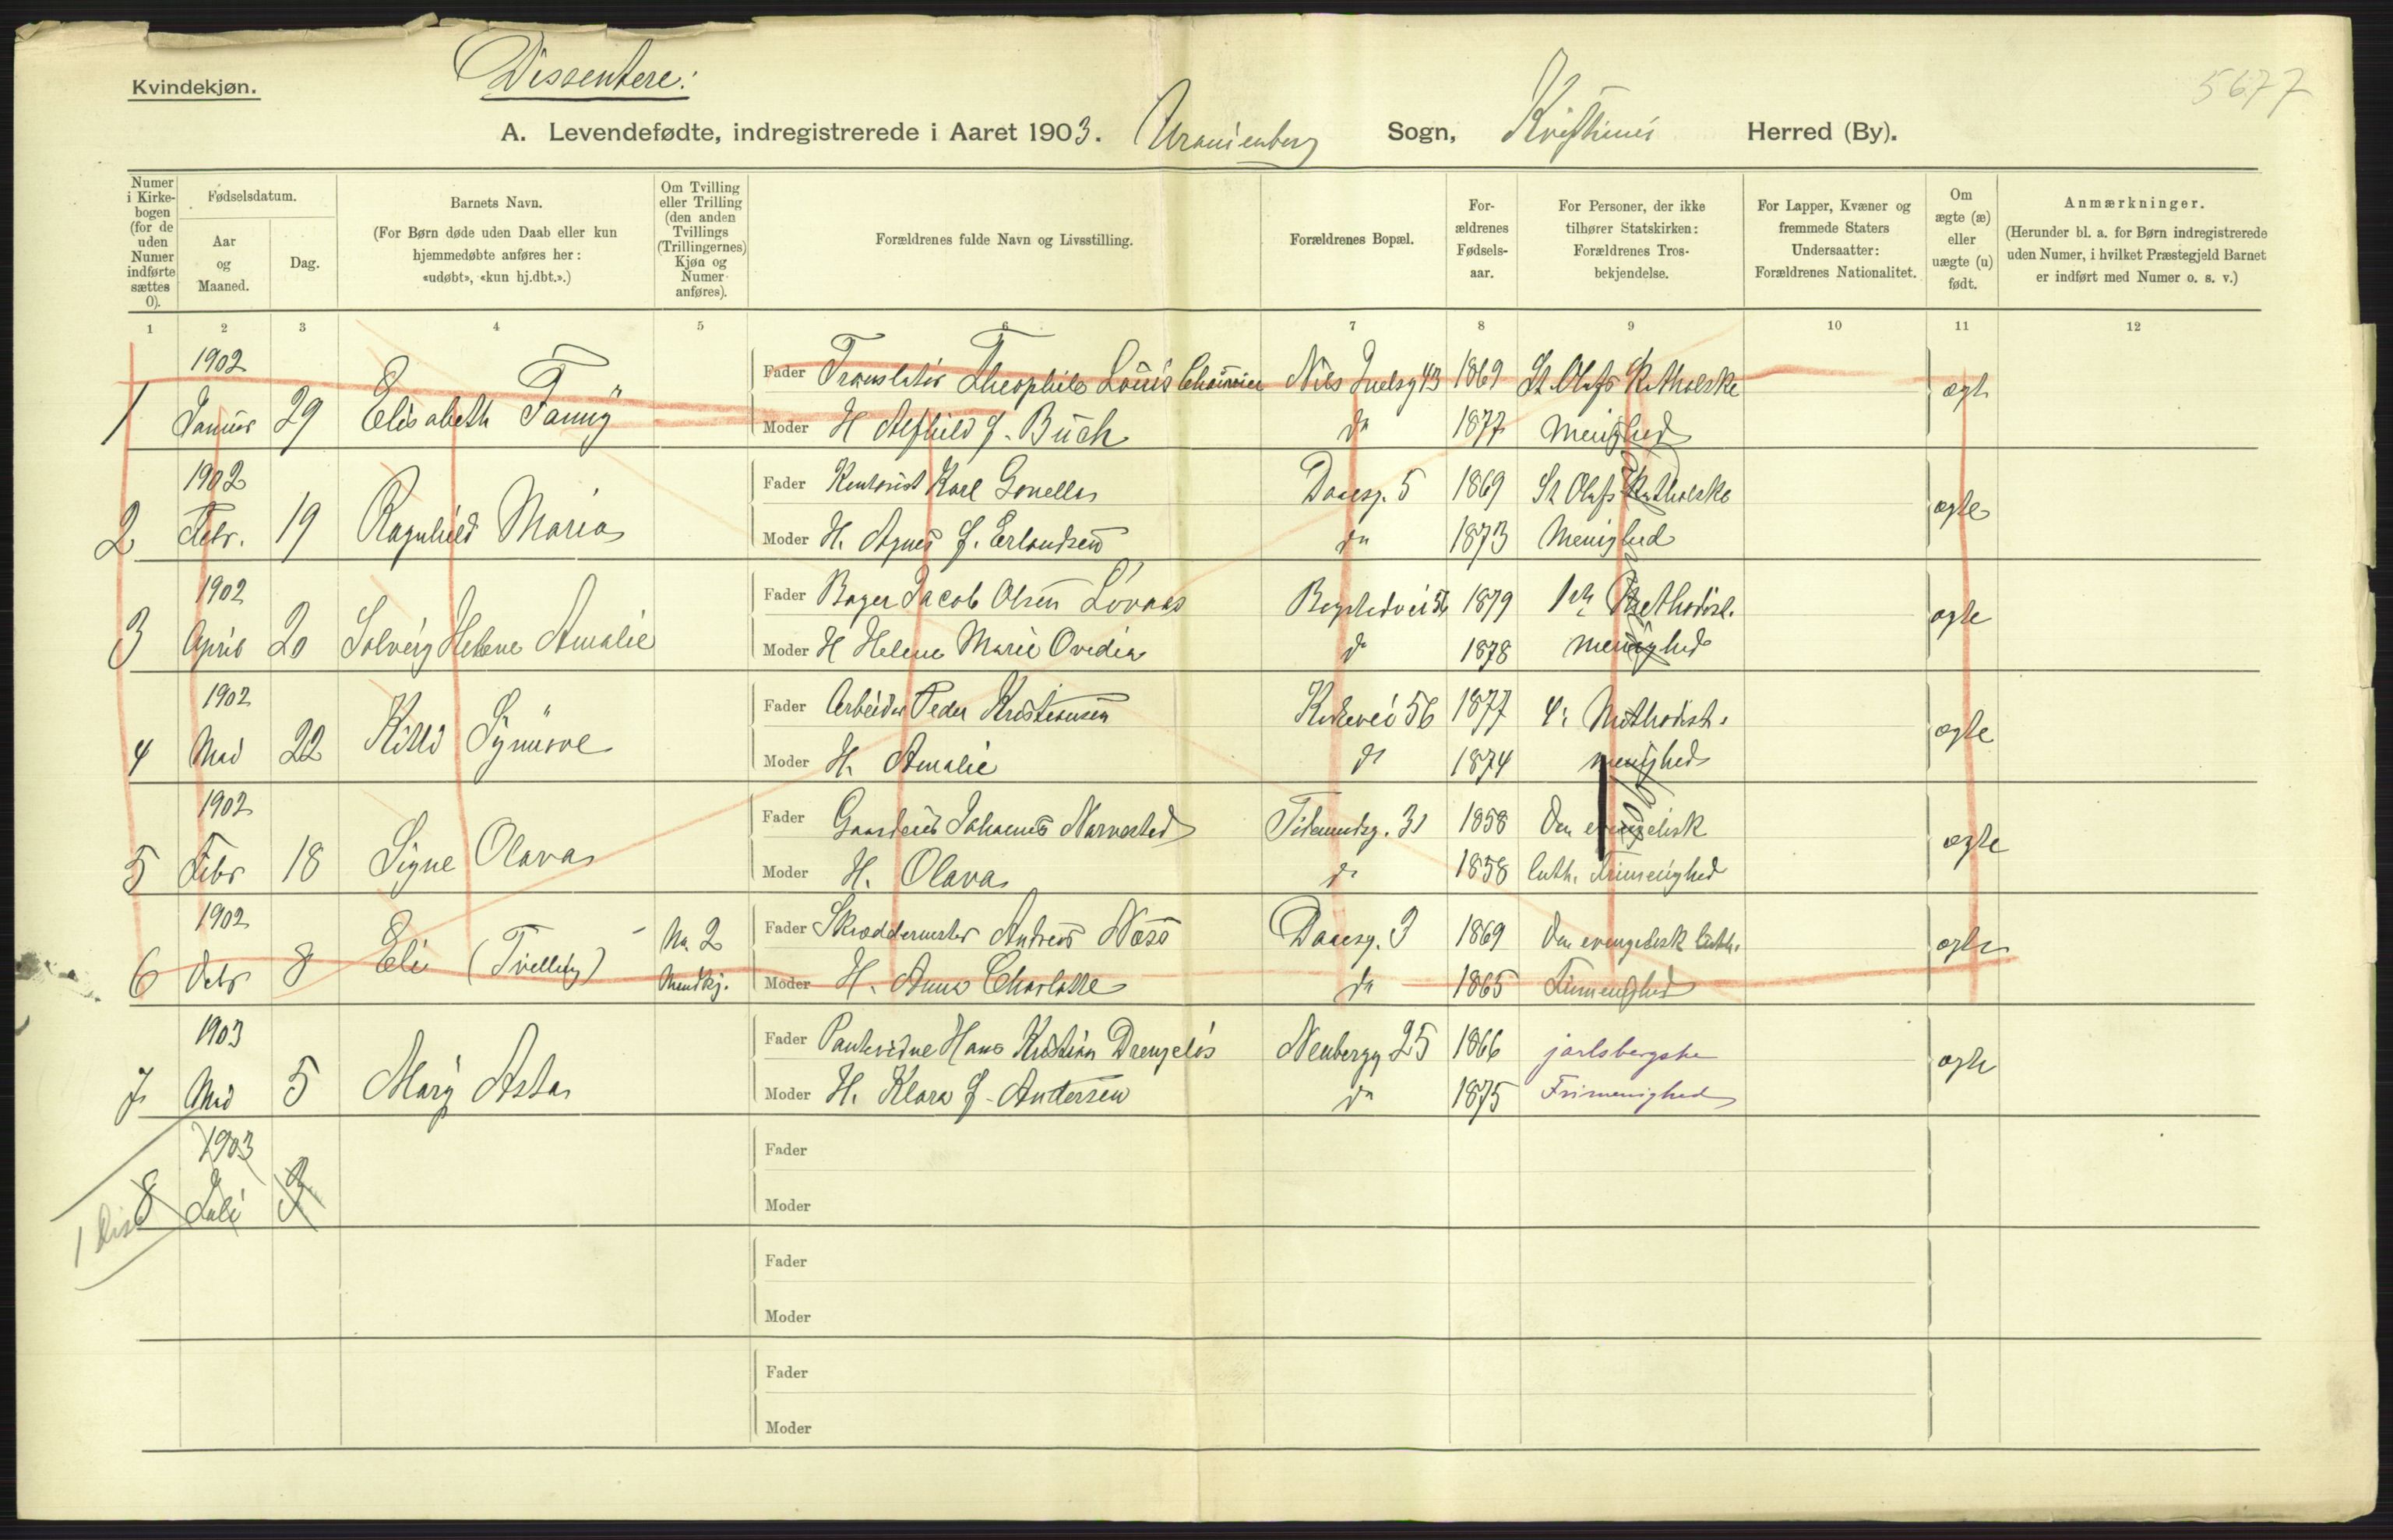 Kvindekjøn.
Dissentere:
5677
A. Levendefødte, indregistrerede i Aaret 1903. Uranienborg Sogn, Kristiania Herred (By).
Numer i Kirkebogen (for de uden Numer indførte sættes 0).
Fødselsdatum.
Aar og Maaned.
Dag.
Barnets Navn.
(For Børn døde uden Daab eller kun hjemmedøbte anføres her: «udøbt», «kun hj.dbt.».)
Om Tvilling eller Trilling (den anden Tvillings (Trillingernes) Kjøn og Numer anføres).
Forældrenes fulde Navn og Livsstilling.
Forældrenes Bopæl.
Forældrenes Fødselsaar.
For Personer, der ikke tilhører Statskirken: Forældrenes Trosbekjendelse.
For Lapper, Kvæner og fremmede Staters Undersaatter: Forældrenes Nationalitet.
Om ægte (æ) eller uægte (u) født.
Anmærkninger.
(Herunder bl. a. for Børn indregistrerede uden Numer, i hvilket Præstegjeld Barnet er indført med Numer o. s. v.)
1 2 3 4 5 6 7 8 9 10 11 12
1902
Fader Translatør Theophile Louis Nils Juelsg 43 1869 St. Olafs Katholske
1 Januar 29 Elisabeth Fanny ægte
Moder H Alfhild f. Buch do 1877 Menighed
1902
Fader Kontorist Karl Gonella Daaesg. 5 1869 St Olafs Katholske
2 Febr. 19 Ragnhild Maria ægte
Moder H. Agnes f. Erlandsen do 1873 Menighed
1902
Fader Bager Jacob Olsen Løvaas Bogstadvei 56 1879 1ste Methodist.
3 April 20 Solveig Helene Amalie ægte
Moder H Helene Marie Ovedia do 1878 menighed
1902
Fader Arbeider Peder Kristiansen Kirkevei 56 1877 4: Methodist.
4 Mai 22 Kitti Synnøve ægte
Moder H. Amalie do 1874 menighed
1902
Fader Johannes Tidemandsg. 31 1858 Den evangelisk
5 Febr 18 Signe Olava ægte
Moder H. Olava do 1858 luth. Frimenighed
1902
Fader Skræddermester Andreas Næss Daaesg. 3 1869 Den evangelisk luth.
6 Octr 8 Eli (Tvilling) No. 2 Mandkj. ægte
Moder H. Anna Charlotte do 1865 Frimenighed
1903
Fader Hans Kristian Drengelis Neubergg 25 1866 jarlsbergske
7 Mai 5 Mary Asta ægte
Moder H. Klara f. Andersen do 1875 Frimenighed
1903
Fader
8 Juli 3
1 Dis
Moder
Fader
Moder
Fader
Moder